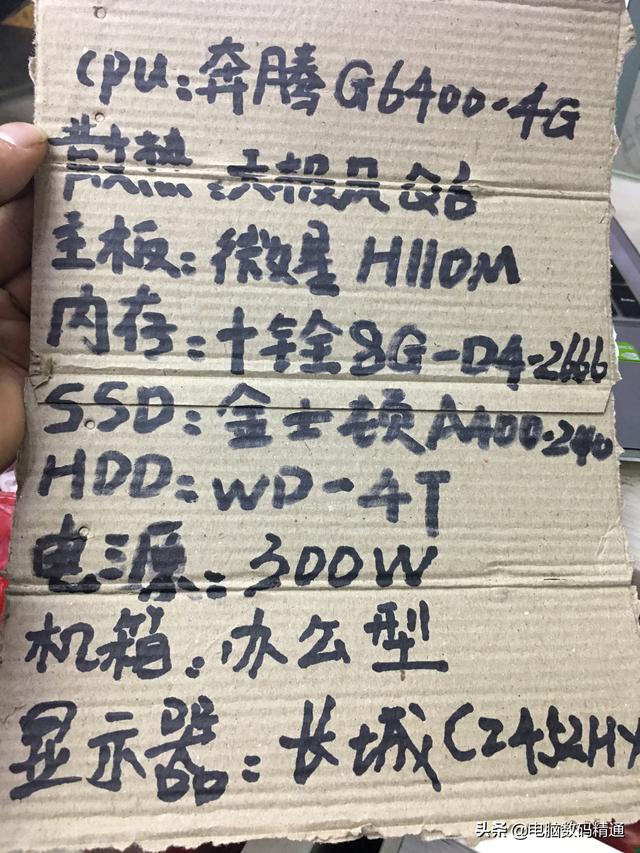 cpu:奔腾G6400·4G
散热:大极风合
主板:微星H110M
内存:十铨8G-D4-2666
SSD:金士顿A400·240
HDD:WD-4T
电源:300W
机箱:办公型
显示器:长城C2452HY
头条 @电脑数码精通